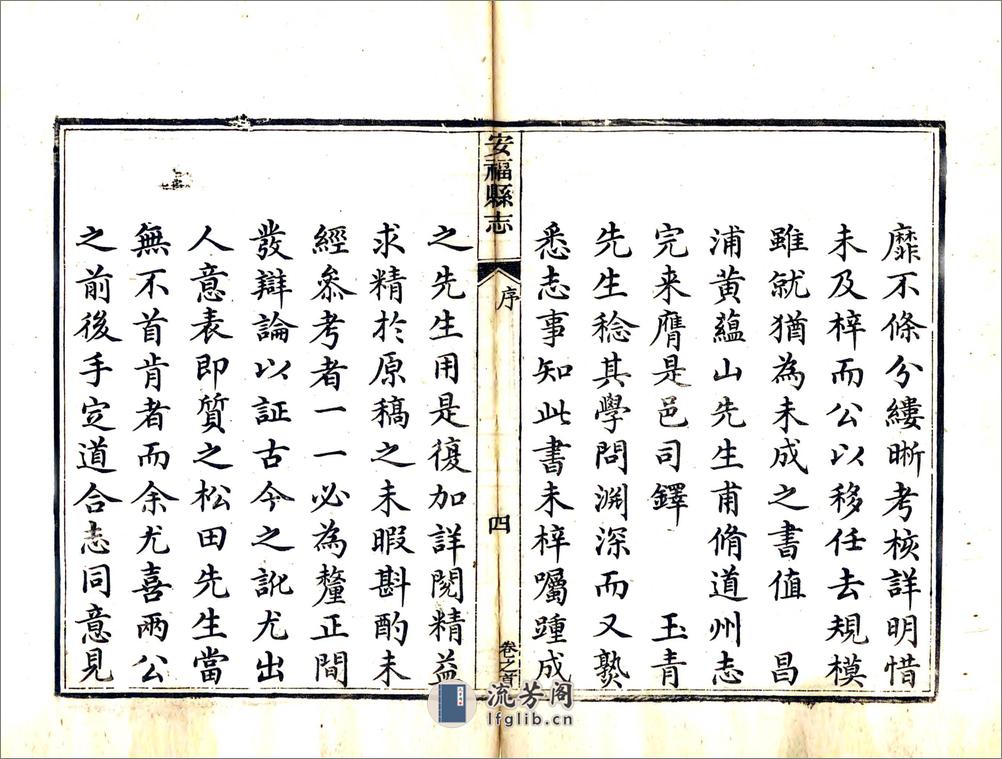 靡不條分縷晰考核詳明惜
未及梓而公以移任去規模
雖就猶為未成之書值　昌
浦黃蘊山先生甫脩道州志
完来膺是邑司鐸　玉青
先生稔其學問淵深而又熟
悉志事知此書未梓囑踵成
安福縣志
序
四
卷之首
之先生用是復加詳閱精益
求精於原稿之未暇斟酌未
經叅考者一一必為釐正間
發辯論以証古今之訛尤出
人意表即質之松田先生當
無不首肯者而余尤喜兩公
之前後手定道合志同意見
流芳阁
lfglib.cn